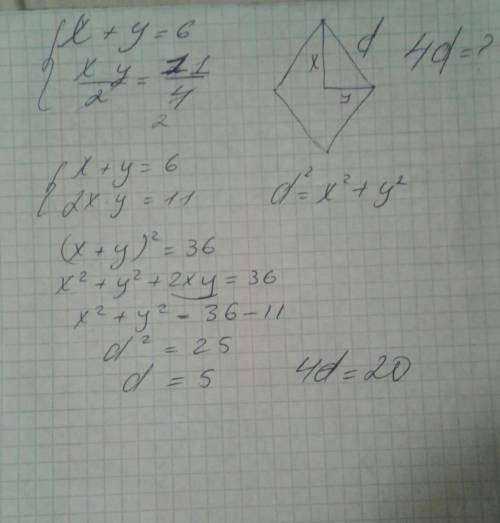 { x + y = 6
x y / 2 = 11 / 4
2
x
y
d
4d = ?
{ x + y = 6
2x y = 11
d² = x² + y²
(x + y)² = 36
x² + y² + 2xy = 36
x² + y² - 36 - 11
d² = 25
d = 5
4d = 20